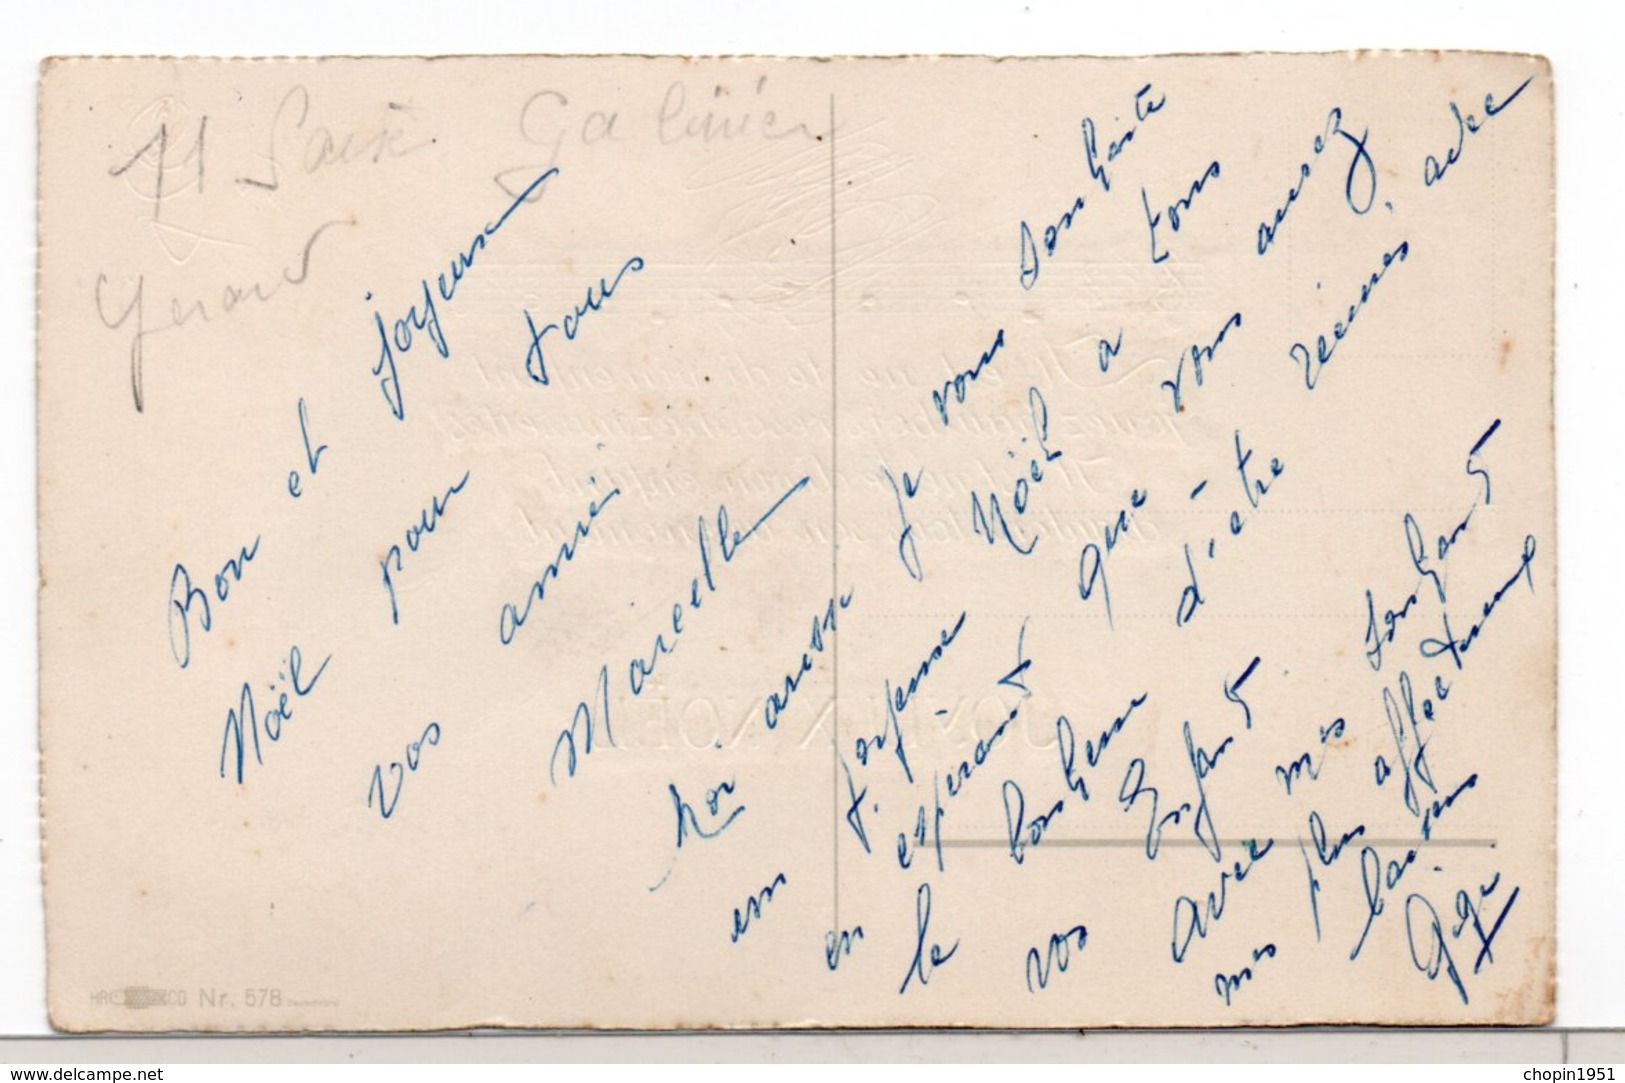 11
Galinier
Gerard
Bon et joyeux
Noël pour tous
vos amis
Marcelle
Moi aussi je vous souhaite
un joyeux Noël a tous
en espérant que vous aurez
le bonheur d'être réunis, avec
vos Enfants
avec mes
mes plus affectueux
baisers
Gigi
Nr. 578
delcampe.net
chopin1951